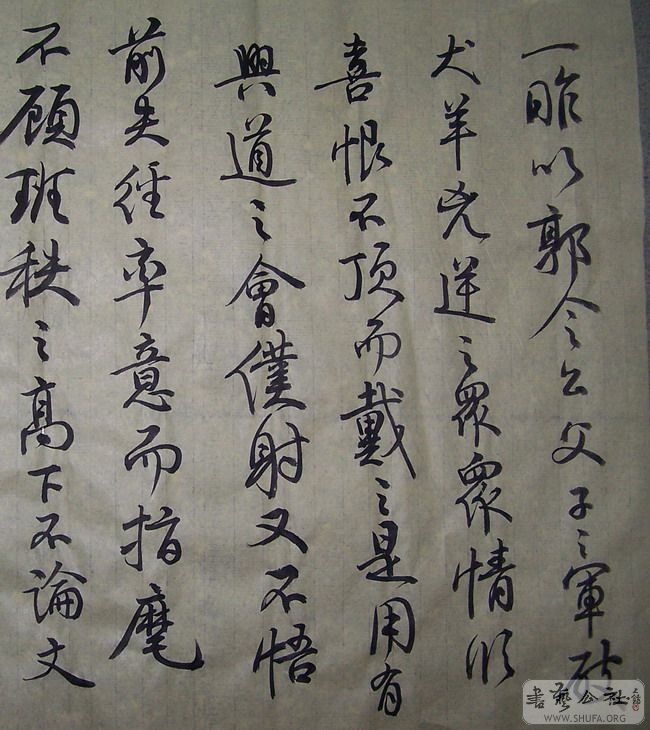 一昨以郭令公父子之軍破
犬羊兇逆之眾眾情欣
喜恨不頂而戴之是用有
興道之會僕射又不悟
前失徑率意而指麾
不顧班秩之高下不論文
書藝公社
WWW.SHUFA.ORG